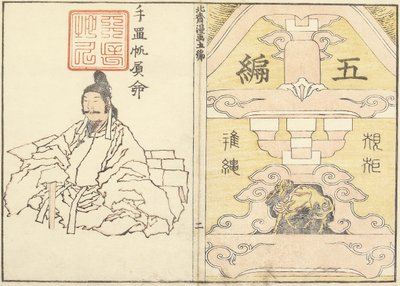 五編
規矩
準繩
北齋漫画五編
二
手置帆負命